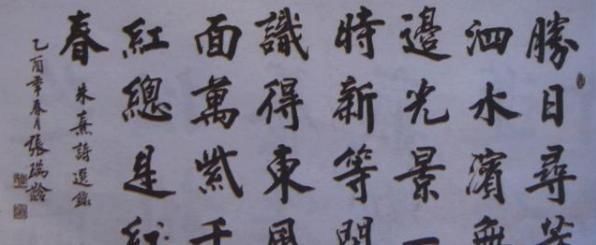 勝日尋芳
泗水濱無
邊光景一
時新等閒
識得東風
面萬紫千
紅總是
春
朱熹詩選錄
乙酉年春月張瑞齡